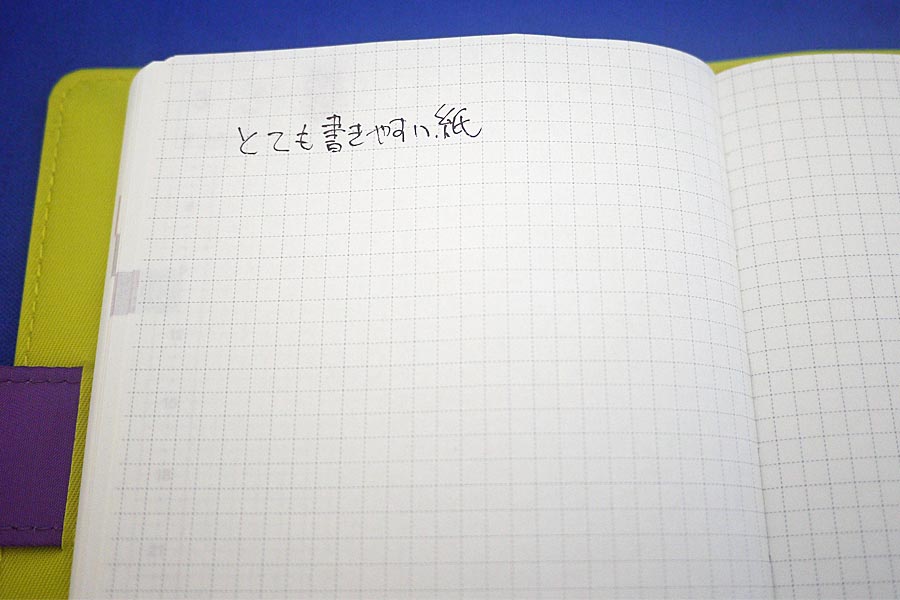 とても書きやすい紙